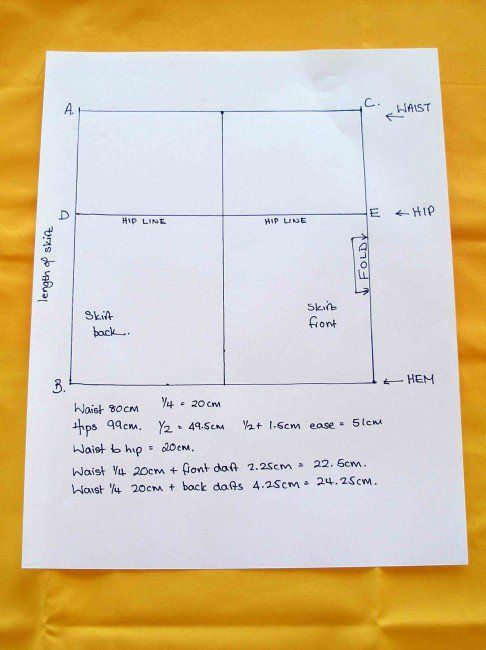 A. C. WAIST
D HIP LINE HIP LINE E HIP
FOLD
length of skirt
Skirt back.
Skirt front
B. HEM
Waist 80cm 1/4 = 20cm
Hips 99cm. 1/2 = 49.5cm 1/2 + 1.5cm ease = 51cm
Waist to hip = 20cm.
Waist 1/4 20cm + front dart 2.25cm = 22.5cm.
Waist 1/4 20cm + back darts 4.25cm = 24.25cm.